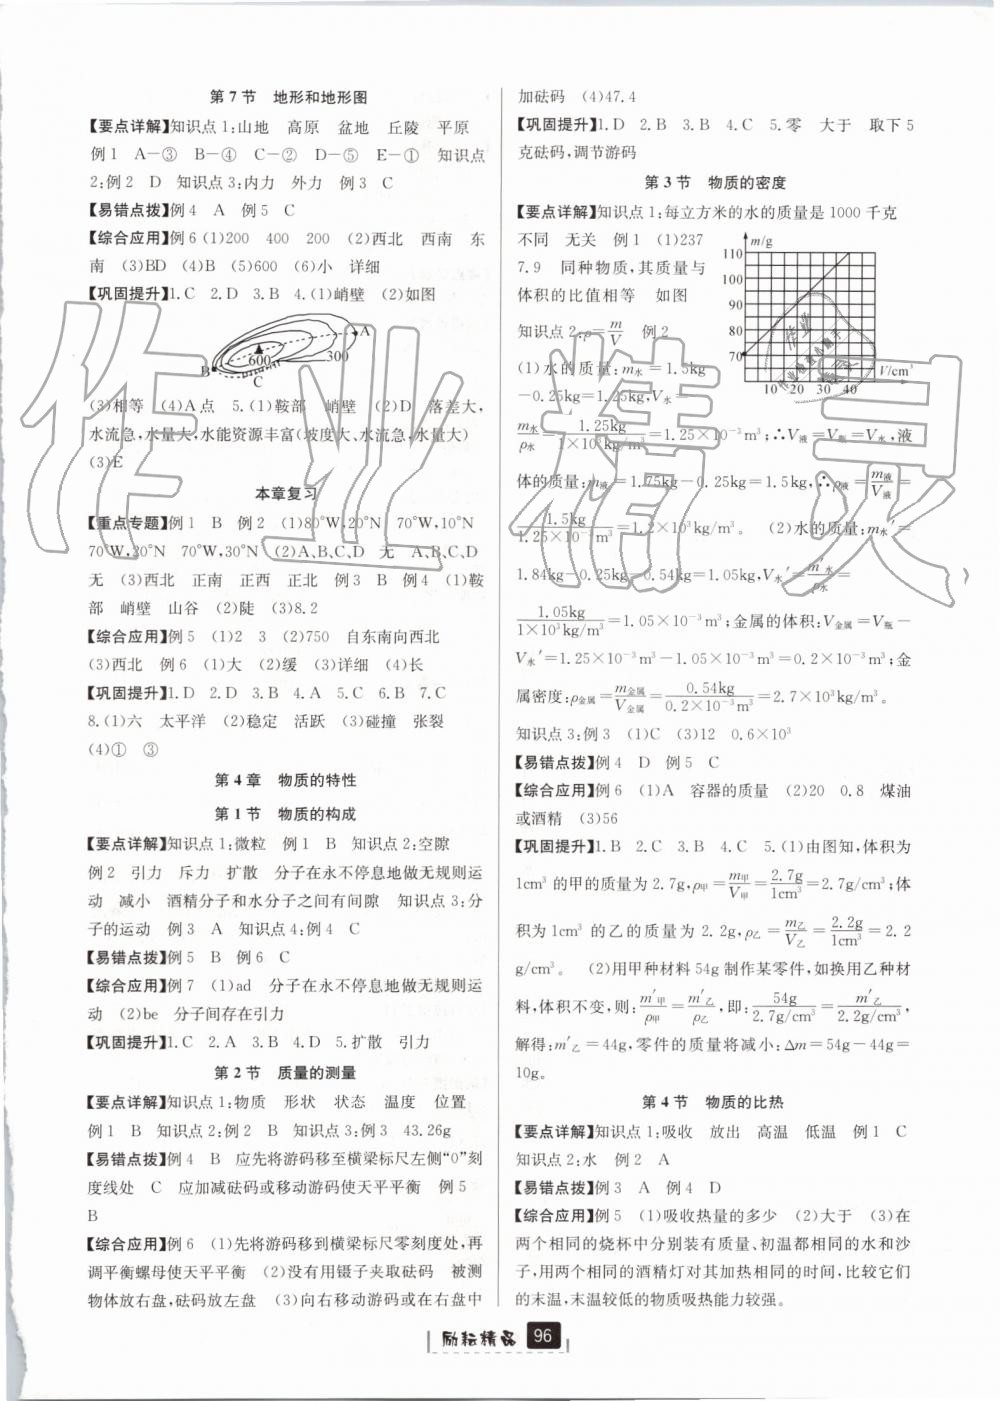 第7节　地形和地形图
【要点详解】知识点1:山地　高原　盆地　丘陵　平原
例1　A—③　B—④　C—②　D—⑤　E—①　知识点
2:例2　D　知识点3:内力　外力　例3　C
【易错点拨】例4　A　例5　C
【综合应用】例6 (1)200　400　200　(2)西北　西南　东
南　(3)BD　(4)B　(5)600　(6)小　详细
【巩固提升】1.C　2.D　3.B　4.(1)峭壁　(2)如图
A
600
300
B
C
(3)相等　(4)A点　5.(1)鞍部　峭壁　(2)D　落差大,
水流急,水量大,水能资源丰富(坡度大、水流急,水量大)
(3)E
本章复习
【重点专题】例1　B　例2　(1)80°W,20°N　70°W,10°N
70°W,20°N　70°W,30°N　(2)A、B、C、D　无　A、B、C、D
无　(3)西北　正南　正西　正北　例3　B　例4　(1)鞍
部　峭壁　山谷　(2)陡　(3)8.2
【综合应用】例5　(1)2　3　(2)750　自东南向西北
(3)西北　例6　(1)大　(2)缓　(3)详细　(4)长
【巩固提升】1.D　2.D　3.B　4.C　5.C　6.B　7.C
8.(1)六　太平洋　(2)稳定　活跃　(3)碰撞　张裂
(4)①　③
第4章　物质的特性
第1节　物质的构成
【要点详解】知识点1:微粒　例1　B　知识点2:空隙
例2　引力　斥力　扩散　分子在永不停息地做无规则运
动　减小　酒精分子和水分子之间有间隙　知识点3:分
子的运动　例3　A　知识点4:例4　C
【易错点拨】例5　B　例6　C
【综合应用】例7　(1)ad　分子在永不停息地做无规则运
动　(2)be　分子间存在引力
【巩固提升】1.C　2.A　3.B　4.D　5.扩散　引力
第2节　质量的测量
【要点详解】知识点1:物质　形状　状态　温度　位置
例1　B　知识点2:例2　B　知识点3:例3　43.26g
【易错点拨】例4　B　应先将游码移至横梁标尺左侧“0”刻
度线处　C　应加减砝码或移动游码使天平平衡　例5
B
【综合应用】例6　(1)先将游码移到横梁标尺零刻度处,再
调平衡螺母使天平平衡　(2)没有用镊子夹取砝码　被测
物体放右盘,砝码放左盘　(3)向右移动游码或在右盘中
加砝码　(4)47.4
【巩固提升】1.D　2.B　3.B　4.C　5.零　大于　取下5
克砝码,调节游码
第3节　物质的密度
【要点详解】知识点1:每立方米的水的质量是1000千克
不同　无关　例1　(1)237
7.9　同种物质,其质量与
体积的比值相等　如图
m/g
110
100
90
80
70
10 20 30 40 V/cm³
知识点2:ρ=m/V　例2
(1)水的质量:m水=1.5kg
-0.25kg=1.25kg,V水=
m水/ρ水=1.25kg/1×10³kg/m³=1.25×10⁻³m³;∴V液=V瓶=V水,液
体的质量:m液=1.75kg-0.25kg=1.5kg,∴ρ液=m液/V液=
1.5kg/1.25×10⁻³m³=1.2×10³kg/m³。　(2)水的质量:m水′=
1.84kg-0.25kg-0.54kg=1.05kg,V水′=m′水/ρ水=
1.05kg/1×10³kg/m³=1.05×10⁻³m³;金属的体积:V金属=V瓶-
V水′=1.25×10⁻³m³-1.05×10⁻³m³=0.2×10⁻³m³;金
属密度:ρ金属=m金属/V金属=0.54kg/0.2×10⁻³m³=2.7×10³kg/m³。
知识点3:例3　(1)C　(3)12　0.6×10³
【易错点拨】例4　D　例5　C
【综合应用】例6　(1)A　容器的质量　(2)20　0.8　煤油
或酒精　(3)56
【巩固提升】1.B　2.C　3.B　4.C　5.(1)由图知,体积为
1cm³的甲的质量为2.7g,ρ甲=m甲/V甲=2.7g/1cm³=2.7g/cm³;体
积为1cm³的乙的质量为2.2g,ρ乙=m乙/V乙=2.2g/1cm³=2.2
g/cm³。　(2)用甲种材料54g制作某零件,如换用乙种材
料,体积不变,则:m′甲/ρ甲=m′乙/ρ乙,即:54g/2.7g/cm³=m′乙/2.2g/cm³,
解得:m′乙=44g,零件的质量将减小:Δm=54g-44g=
10g。
第4节　物质的比热
【要点详解】知识点1:吸收　放出　高温　低温　例1　C
知识点2:水　例2　A
【易错点拨】例3　A　例4　D
【综合应用】例5　(1)吸收热量的多少　(2)大于　(3)在
两个相同的烧杯中分别装有质量、初温都相同的水和沙
子,用两个相同的酒精灯对其加热相同的时间,比较它们
的末温,末温较低的物质吸热能力较强。
励耘精品　96
作业精灵